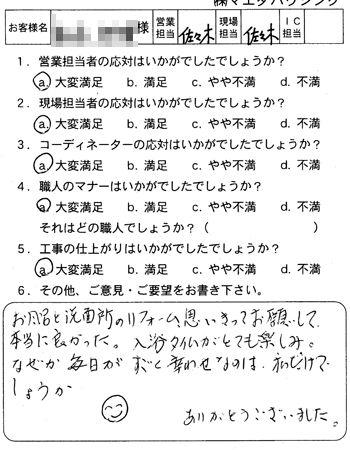 ㈱マエダハウジング
お客様名 様 営業担当 佐々木 現場担当 佐々木 IC担当
1．営業担当者の応対はいかがでしたでしょうか？
a. 大変満足 b. 満足 c. やや不満 d. 不満
2．現場担当者の応対はいかがでしたでしょうか？
a. 大変満足 b. 満足 c. やや不満 d. 不満
3．コーディネーターの応対はいかがでしたでしょうか？
a. 大変満足 b. 満足 c. やや不満 d. 不満
4．職人のマナーはいかがでしたでしょうか？
a. 大変満足 b. 満足 c. やや不満 d. 不満
それはどの職人でしょうか？（ ）
5．工事の仕上がりはいかがでしたでしょうか？
a. 大変満足 b. 満足 c. やや不満 d. 不満
6．その他、ご意見・ご要望をお書き下さい。
お風呂と洗面所のリフォーム、思いきってお願いして
本当に良かった。入浴タイムがとても楽しみ。
なぜか毎日がずっと幸わせなのは、私だけで
しょうか
ありがとうございました。